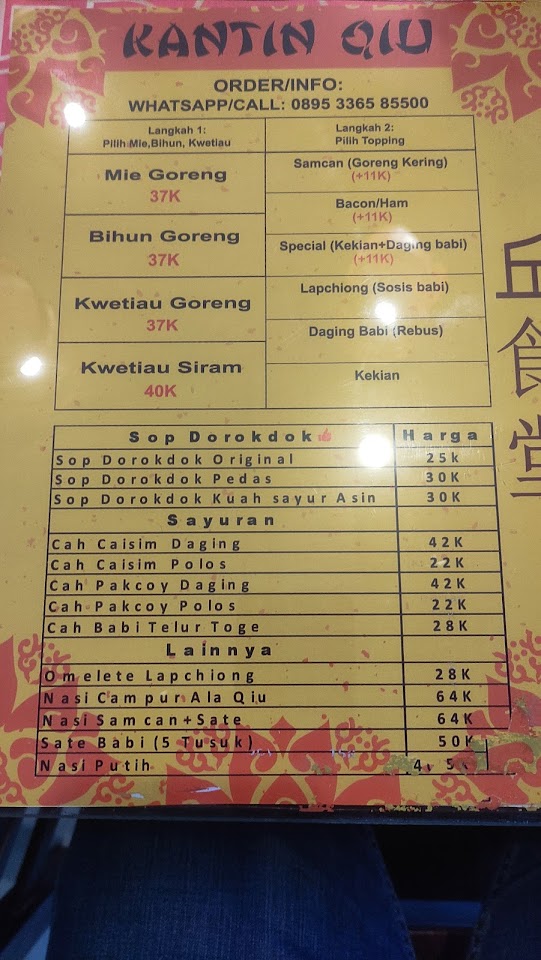 KANTIN QIU
ORDER/INFO:
WHATSAPP/CALL: 0895 3365 85500
Langkah 1:
Pilih Mie,Bihun, Kwetiau
Mie Goreng
37K
Bihun Goreng
37K
Kwetiau Goreng
37K
Kwetiau Siram
40K
Langkah 2:
Pilih Topping
Samcan (Goreng Kering)
(+11K)
Bacon/Ham
(+11K)
Special (Kekian+Daging babi)
(+11K)
Lapchiong (Sosis babi)
Daging Babi (Rebus)
Kekian
丘食堂
Sop Dorokdok Harga
Sop Dorokdok Original 25K
Sop Dorokdok Pedas 30K
Sop Dorokdok Kuah sayur Asin 30K
Sayuran
Cah Caisim Daging 42K
Cah Caisim Polos 22K
Cah Pakcoy Daging 42K
Cah Pakcoy Polos 22K
Cah Babi Telur Toge 28K
Lainnya
Omelete Lapchiong 28K
Nasi Campur Ala Qiu 64K
Nasi Samcan+Sate 64K
Sate Babi (5 Tusuk) 50K
Nasi Putih